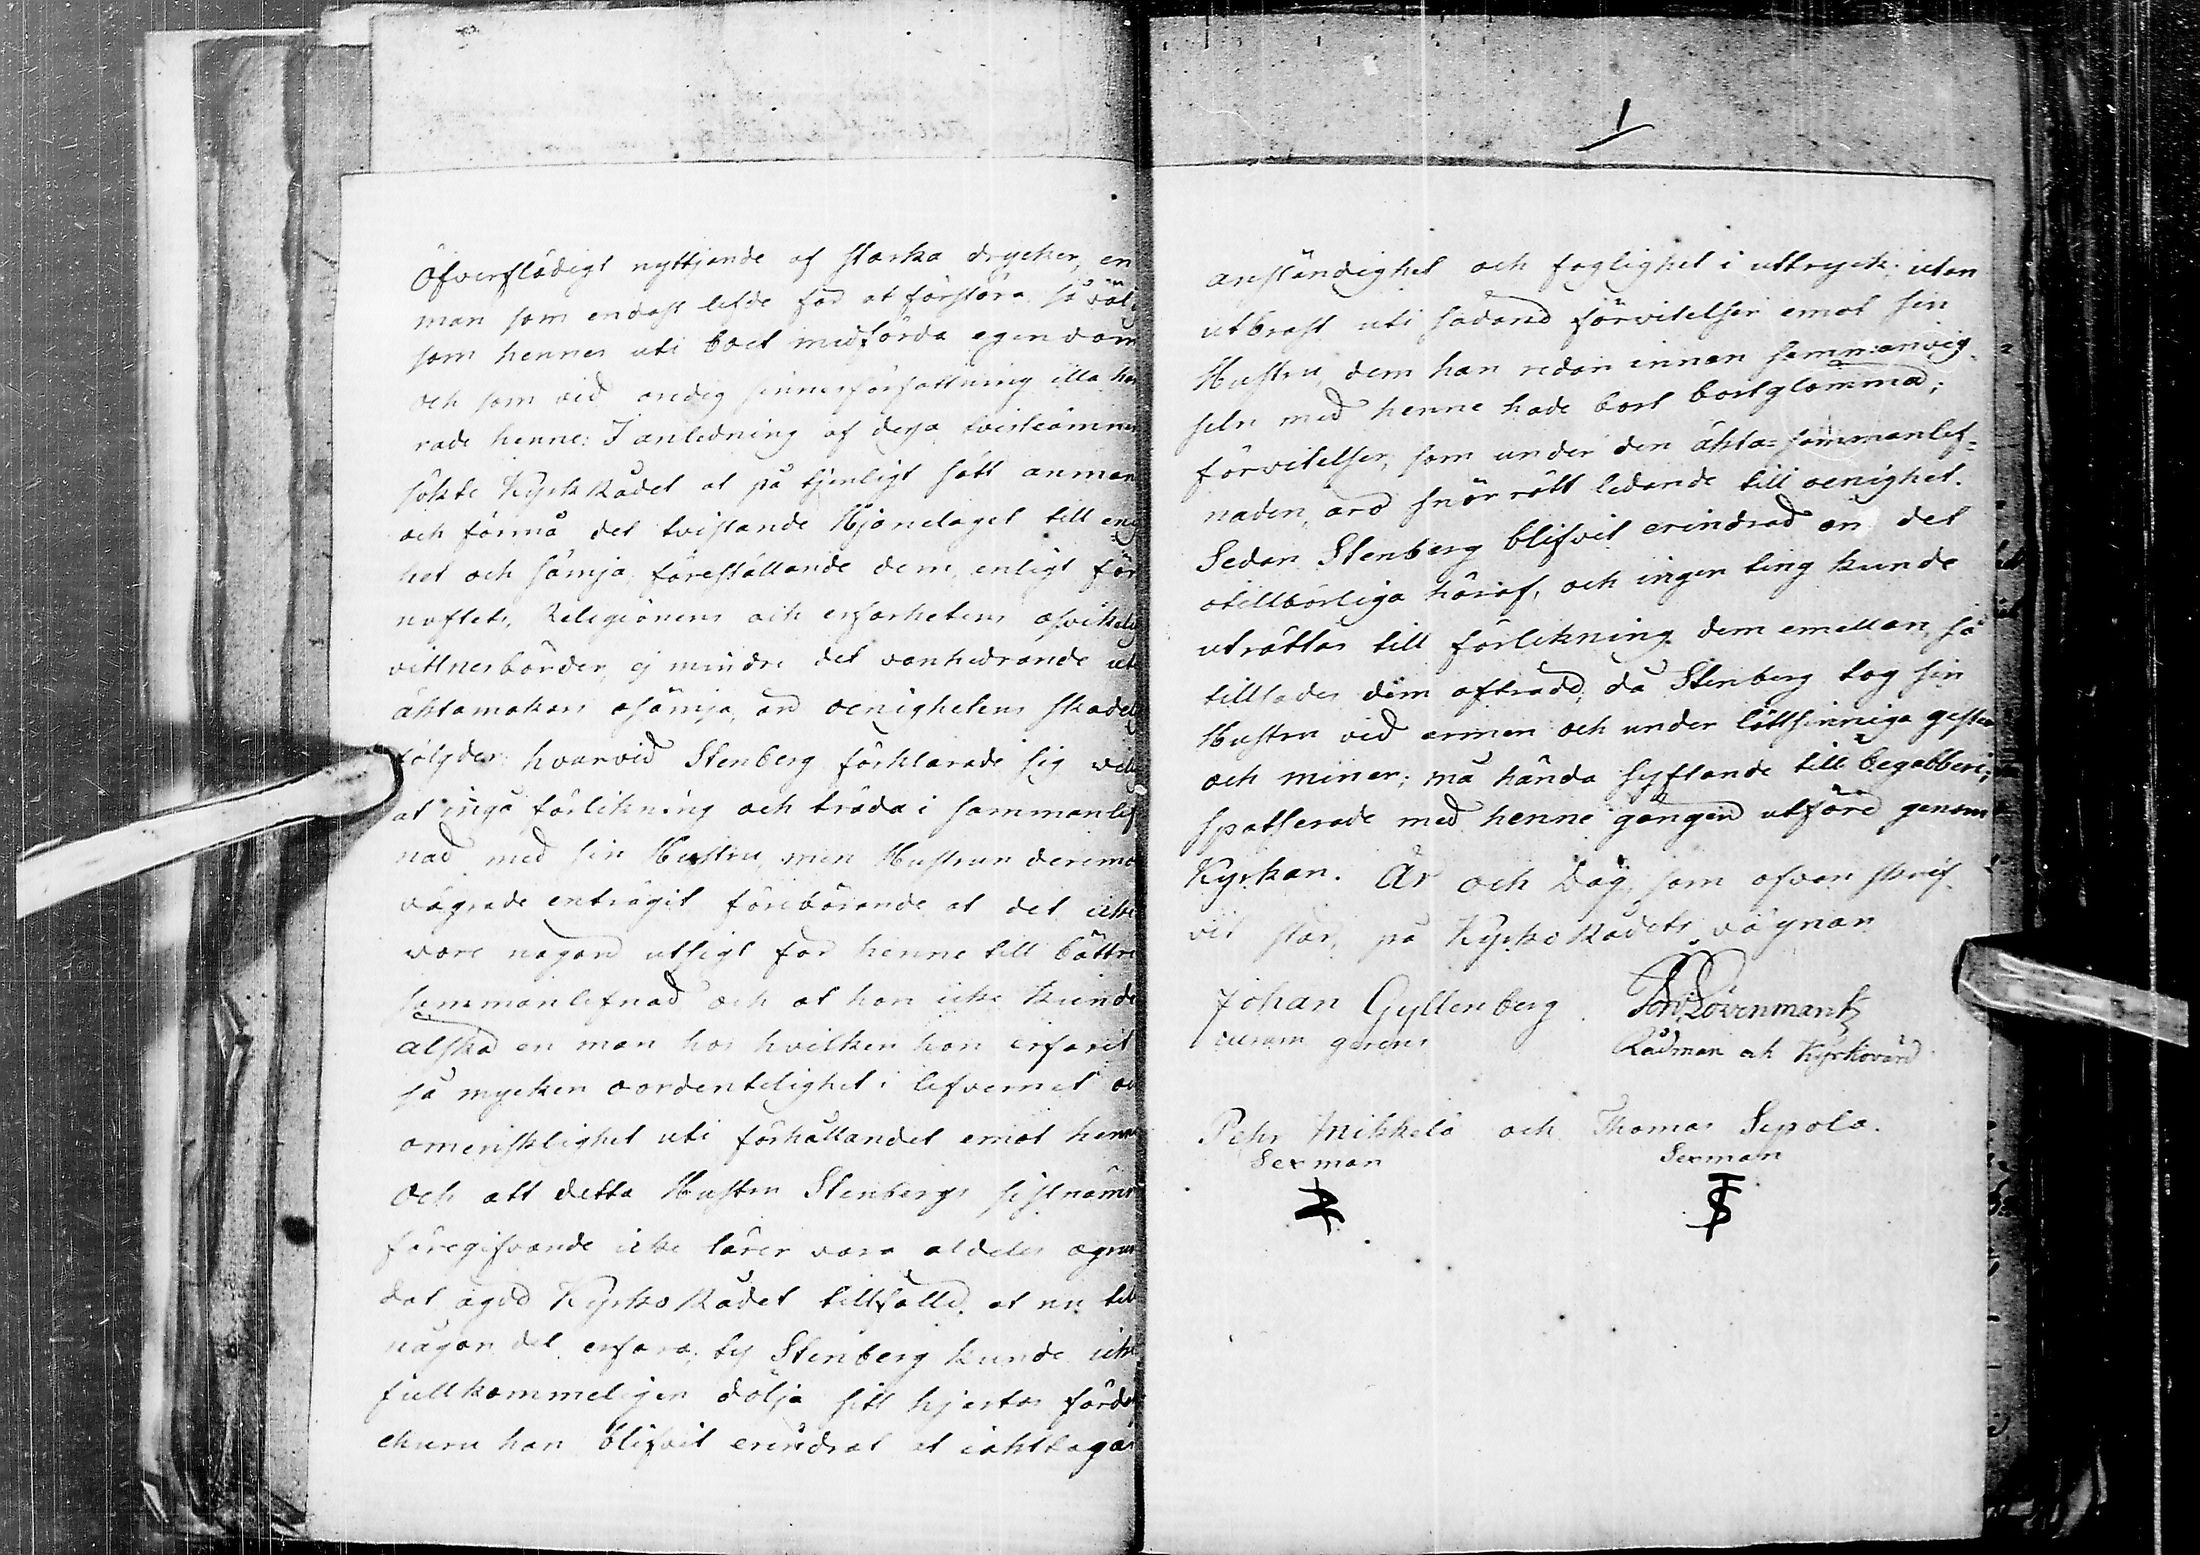 Öfverflödigt nyttjande af starka drycker, en
man som endast lefde för at förstöra så väl
som hennes uti boet medförda egendom
och som vid oredig sinnesförfattning illa ha
rade henne: I anledning af dessa tvisteämnen
sökte Kyrk Rådet at på tjenligt sätt anman
och förmå det tvistande Hjonelaget till enig
het och sämja, föreställande dem, enligt för
nuftets, Religionens och erfarhetens osvikelig
vittnesbörder, ej mindre det vanhedrande uti
äktamakars osämja, än oenighetens skadelig
följder: hvarvid Stenberg förklarade sig velig
at ingå förlikning och träda i sammanlef
nad med sin Hustru, men Hustrun deremot
vägrade enträgit förebärande at det icke
vore någon utsigt för henne till bättre
sammanlefnad och at hon icke kunde
älska en man hos hvilken hon erfarit
så mycken oordentelighet i lefvernet och
omensklighet uti förhållandet emot henne
Och att detta Hustru Stenbergs sistnämn
föregifvande icke lärer vara aldeles ogrun
dat ägde Kyrko Rådet tillfälle at nu till
någon del erfara, ty Stenberg kunde icke
fullkommeligen dölja sitt hjertas förder
ehuru han blifvit erindrat at iakttaga
1
anständighet och foglighet i uttryck; utan
utbrast uti sådane förvitelser emot sin
Hustru, dem han redan innan sammanvig
seln med henne hade bort bortglömma;
förvitelser, som under den äkta=sammanlef=
naden, äro snörrätt ledande till oenighet.
Sedan Stenberg blifvit erindrad om det
otillbörliga häraf, och ingen ting kunde
uträttas till förlikning dem emellan, så
tillsades dem afträde, då Stenberg tog sin
Hustru vid armen och under lättsinniga gester
och miner; må hända syftande till begabberi;
spatserade med henne gången utföre genom
Kyrkan. År och Dag, som ofvan skrif
vit står, på Kyrko Rådets vägnar
Johan Gyllenberg
curam gerens
Lövenmark
Rådman och Kyrkovärd
Pehr Mikkelä och Thomas Sepola.
Sexman Sexman
TS